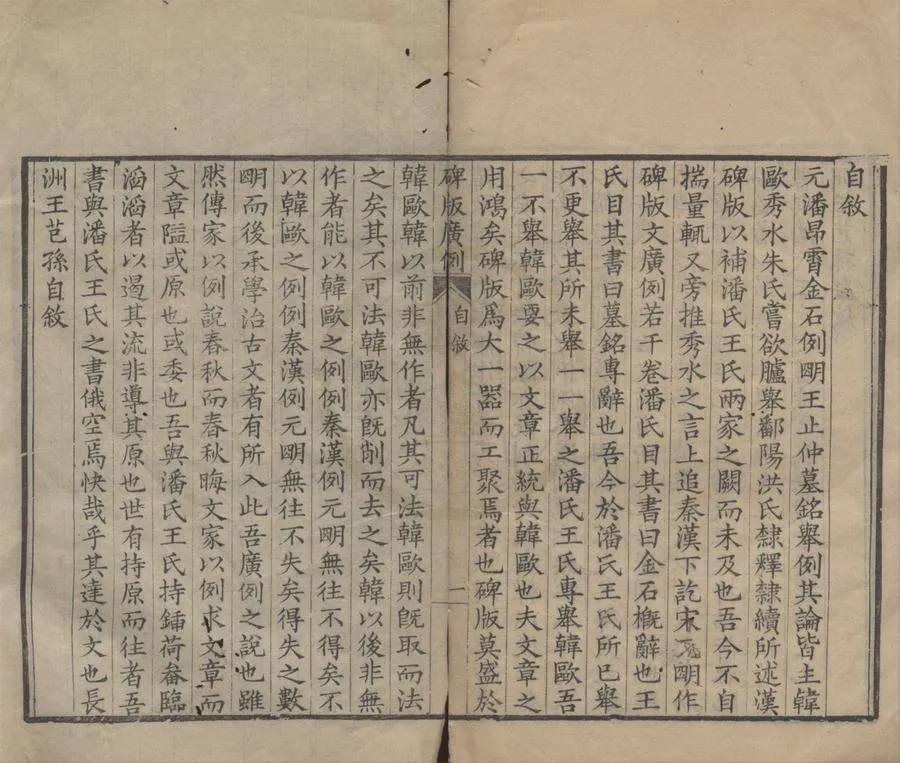 自敘
元潘昂霄金石例明王止仲墓銘舉例其論皆主韓
歐秀水朱氏嘗欲臚舉鄱陽洪氏隸釋隸續所述漢
碑版以補潘氏王氏兩家之闕而未及也吾今不自
揣量輒又旁推秀水之言上追秦漢下訖宋元明作
碑版文廣例若干卷潘氏目其書曰金石概辭也王
氏目其書曰墓銘專辭也吾今於潘氏王氏所已舉
不更舉其所未舉一一舉之潘氏王氏專舉韓歐吾
一不舉韓歐要之以文章正統與韓歐也夫文章之
用鴻矣碑版爲大一器而工聚焉者也碑版莫盛於
碑版廣例 自敘 一
韓歐韓以前非無作者凡其可法韓歐則旣取而法
之矣其不可法韓歐亦旣削而去之矣韓以後非無
作者能以韓歐之例例秦漢例元明無往不得矣不
以韓歐之例例秦漢例元明無往不失矣得失之數
明而後承學治古文者有所入此吾廣例之說也雖
然傳家以例說春秋而春秋晦文家以例求文章而
文章隘或原也或委也吾與潘氏王氏持鍤荷畚臨
滔滔者以遏其流非導其原也世有持原而往者吾
書與潘氏王氏之書俄空焉快哉乎其達於文也長
洲王芑孫自敘